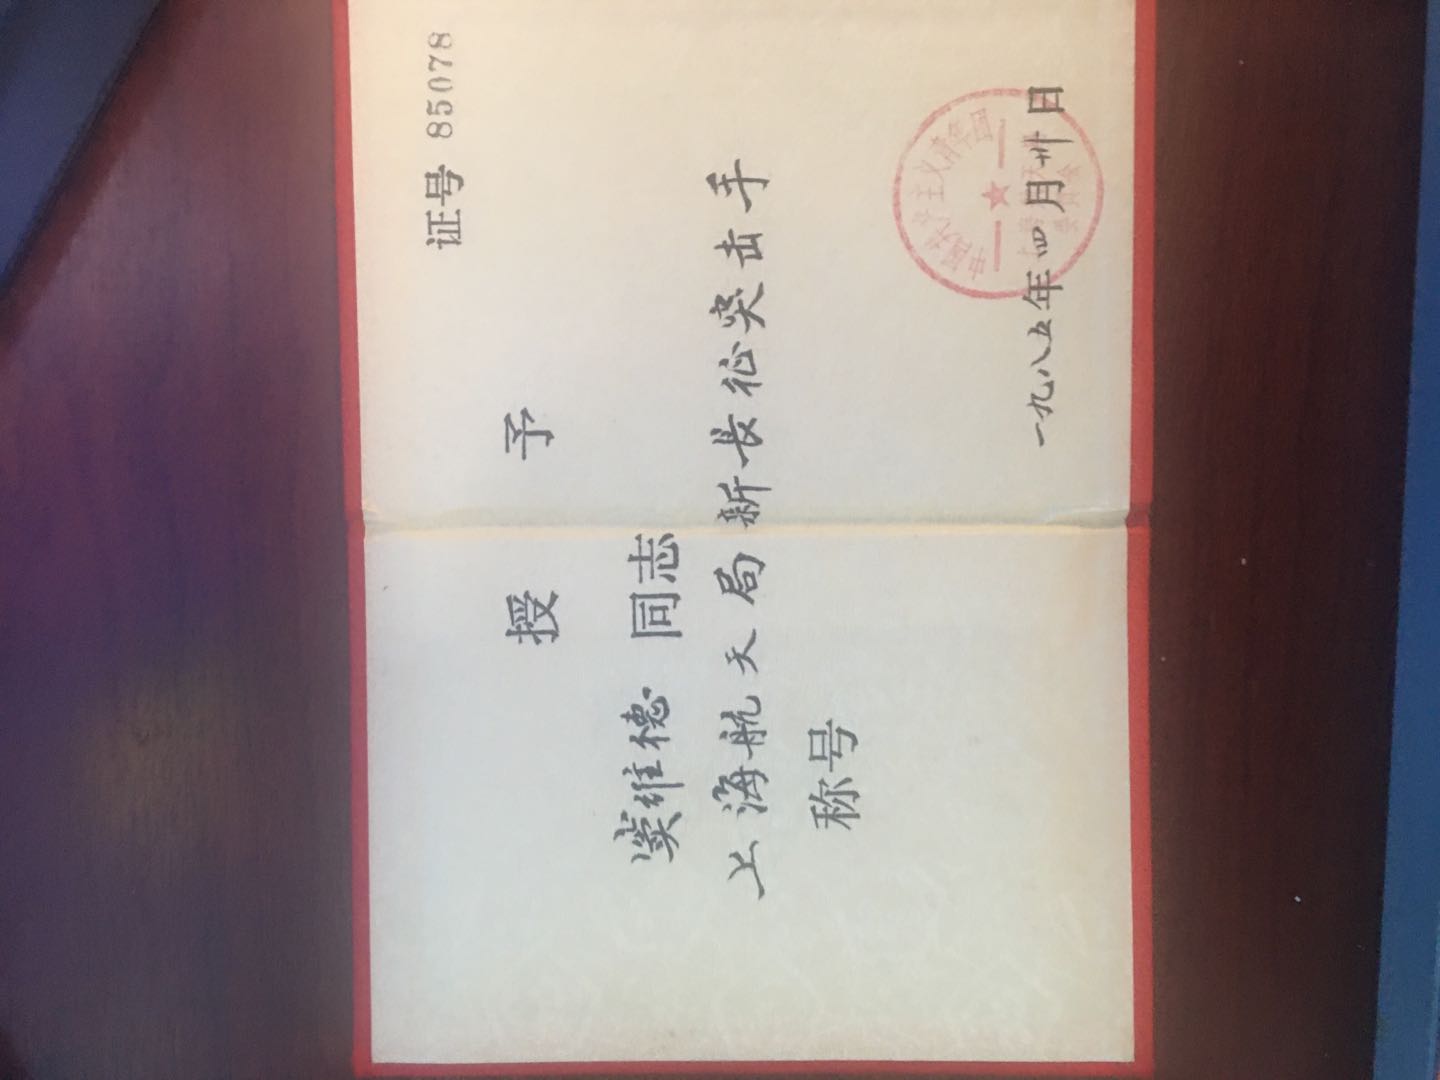 证号 85078
授 予
窦维德 同志
上海航天局新长征突击手
称号
中国共产主义青年团
委员会
一九八五年四月卅日